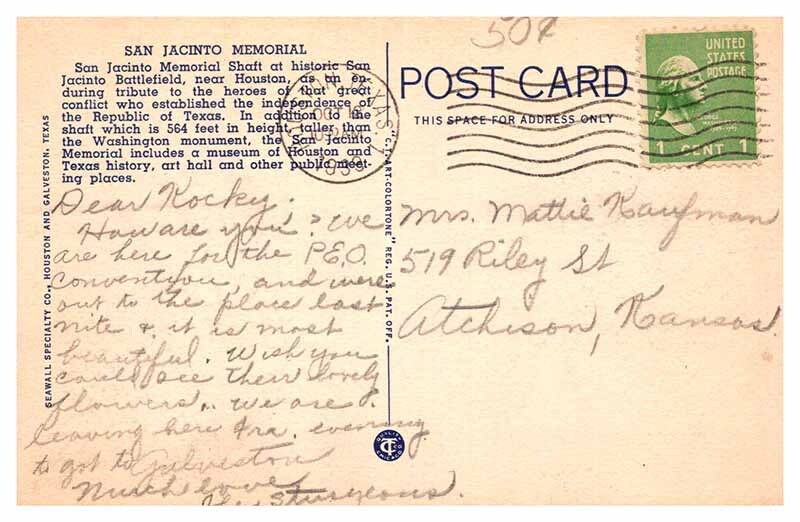 50¢
SAN JACINTO MEMORIAL
San Jacinto Memorial Shaft at historic San
Jacinto Battlefield, near Houston, as an en-
during tribute to the heroes of that great
conflict who established the independence of
the Republic of Texas. In addition to the
shaft which is 564 feet in height, taller than
the Washington monument, the San Jacinto
Memorial includes a museum of Houston and
Texas history, art hall and other public meet-
ing places.
SEAWALL SPECIALTY CO., HOUSTON AND GALVESTON, TEXAS
TEXAS
OCT
1939
"C.T. ART-COLORTONE" REG. U.S. PAT. OFF.
POST CARD
THIS SPACE FOR ADDRESS ONLY
UNITED
STATES
POSTAGE
1 CENT 1
Dear Kocky:
How are you? We
are here for the P.E.O.
convention, and were
out to the place last
nite & it is most
beautiful. Wish you
could see their lovely
flowers. We are
leaving here evening
to go to Galveston
Much love
The Sturgeons.
Mrs. Mattie Kaufman
519 Riley St
Atchison, Kansas.
QUALITY
CT
CHICAGO